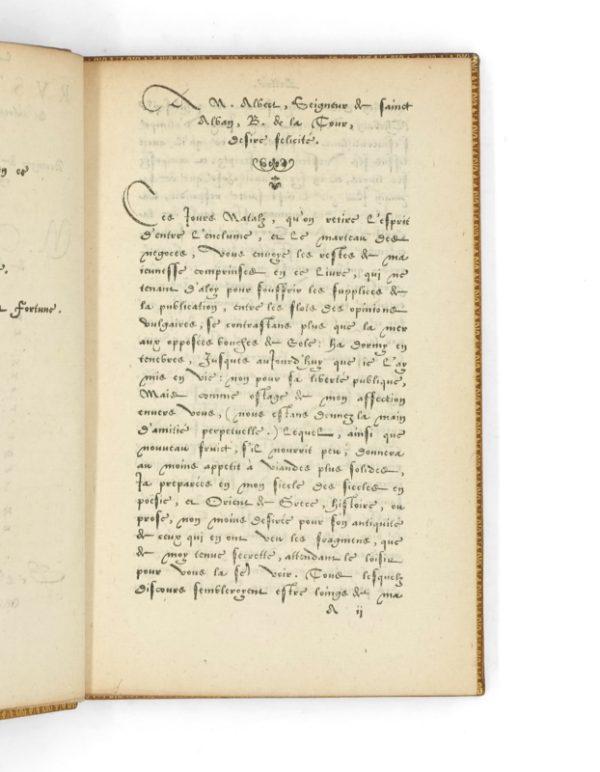 RVS
n ce
e.
t Fortune.
A M. Albert, Seigneur de sainct
Alban, B. de la Tour,
desire felicité.
Ces Jours Natalz, qu'on retire L'esprit
d'entre L'enclume, et Le marteau des
negoces, Vous envoye les restes de ma
ieunesse comprinses en ce Livre, qui ne
tenant d'aloy pour souffrir les supplices de
la publication, entre les flots des opinions
vulgaires, se contrastans plus que la mer
aux opposées bouches de Eole: ha dormy en
tenebres, Jusques auJourd'huy que ie L'ay
mis en vie: non pour sa liberté publique,
Mais comme ostage de mon affection
envers vous, (nous estans donnez la main
d'amitié perpetuelle.) Lequel, ainsi que
nouveau fruict, s'il nourrit peu, donnera
au moins appetit à viandes plus solides,
Ja preparées en mon siecle des siecles en
poësie, et Orient de Grece, histoire, ou
prose, non moins desirée pour son antiquité
de ceux qui en ont veu les fragmens, que
de moy tenue secrette, attendant le loisir
pour vous la voir. Tous lesquelz
discours sembleroyent estre loings de ma
A ij